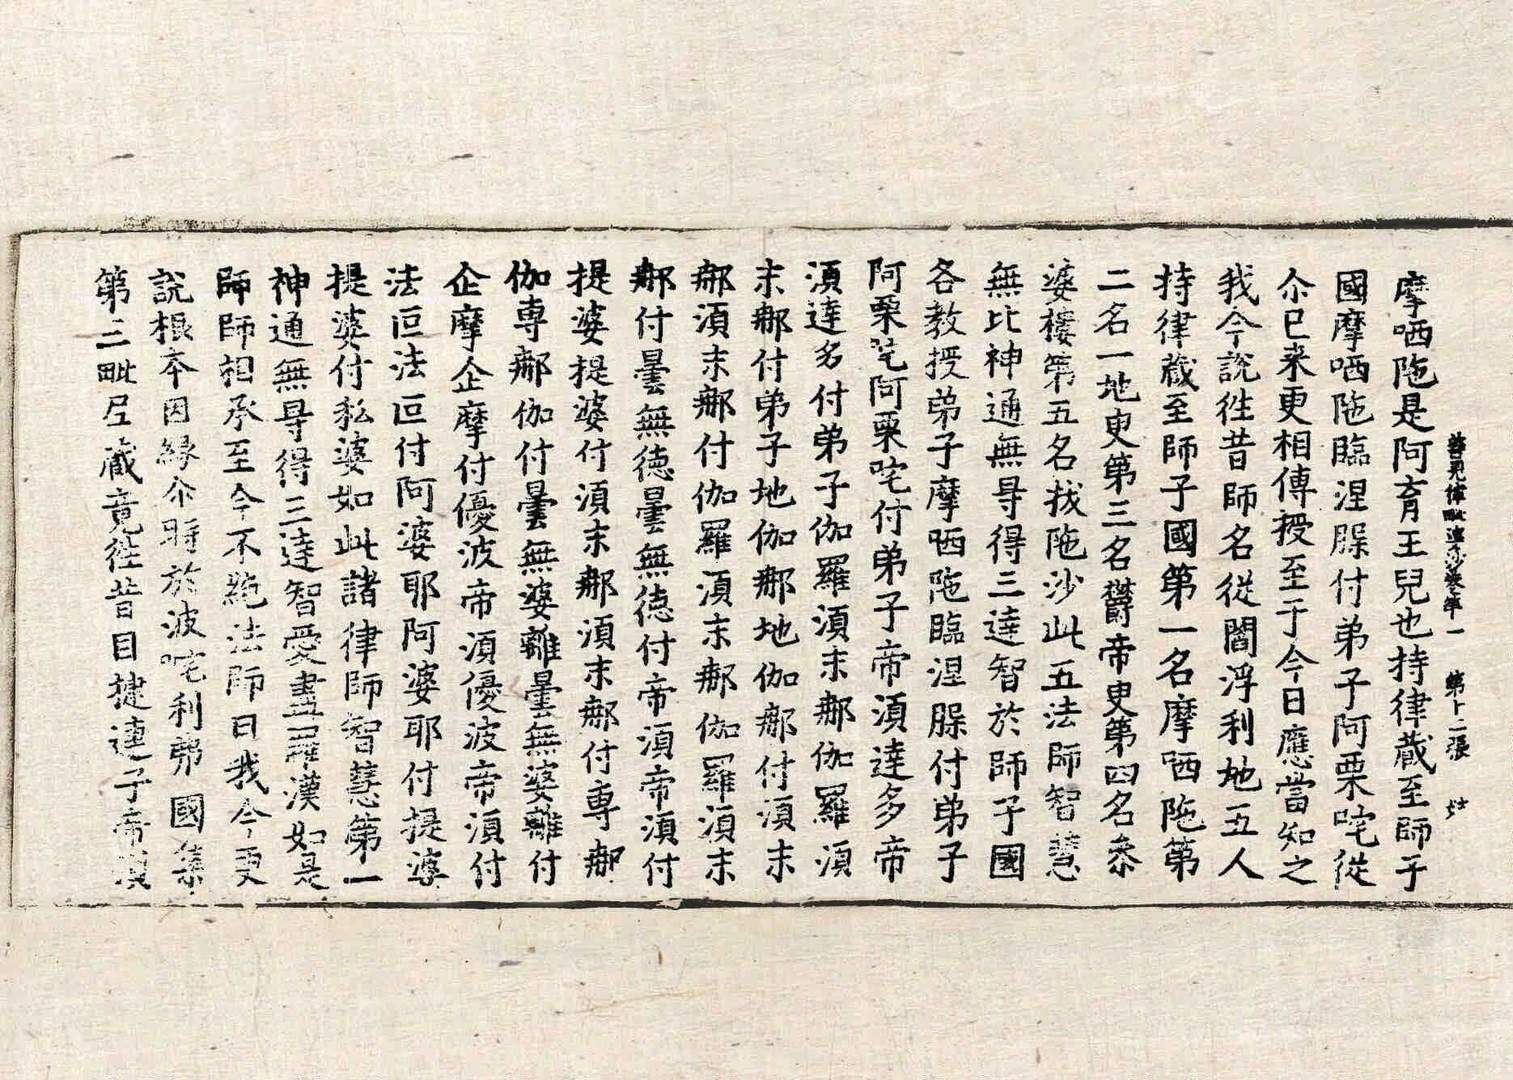 善見律毗婆沙卷第一　第十二張
摩哂陁是阿育王兒也持律藏至師子
國摩哂陁臨涅脲付弟子阿栗咤從
尒已来更相傳授至于今日應當知之
我今說徃昔師名從閻浮利地五人
持律藏至師子國第一名摩哂陁第
二名一地臾第三名欝帝臾第四名叅
婆樓第五名拔陁沙此五法師智慧
無比神通無㝵得三達智於師子國
各教授弟子摩哂陁臨涅脲付弟子
阿栗咤阿栗咤付弟子帝湏達多帝
湏達多付弟子伽羅湏末𨚗伽羅湏
末𨚗付弟子地伽𨚗地伽𨚗付湏末
𨚗湏末𨚗付伽羅湏末𨚗伽羅湏末
𨚗付曇無德曇無德付帝湏帝湏付
提婆提婆付湏末𨚗湏末𨚗付専𨚗
伽専𨚗伽付曇無婆離曇無婆離付
企摩企摩付優波帝湏優波帝湏付
法叵法叵付阿婆耶阿婆耶付提婆
提婆付私婆如此諸律師智慧第一
神通無㝵得三達智愛盡羅漢如是
師師相承至今不絶法師曰我今更
說根本因緣尒時於波咤利弗國集
第三毗尼藏竟徃昔目揵連子帝湏